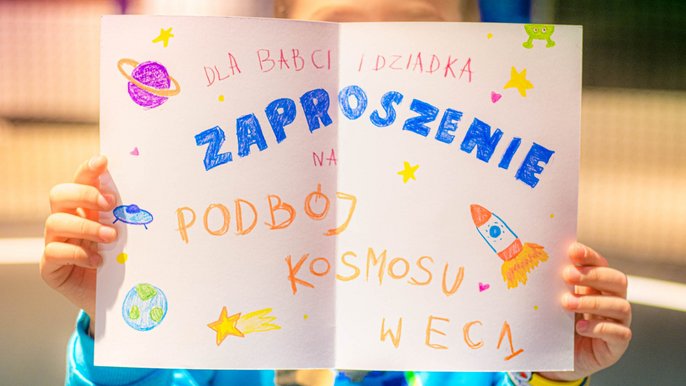 DLA BABCI I DZIADKA
ZAPROSZENIE
NA
PODBÓJ
KOSMOSU
W EC1